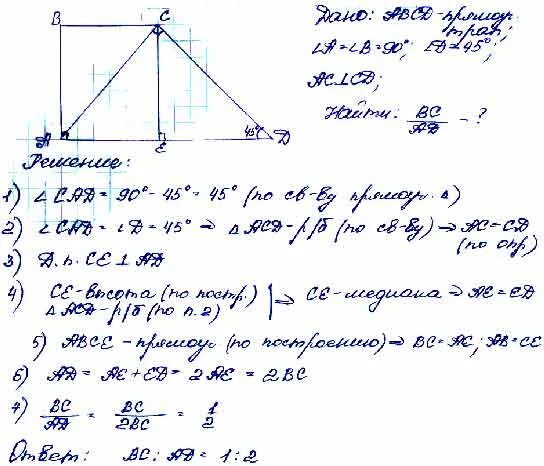 B C
Дано: ABCD-прямоуг. трап;
∠A=∠B=90°; ∠D=45°;
AC⊥CD;
Найти: BC/AD - ?
A E 45° D
Решение:
1) ∠CAD = 90°-45° = 45° (по св-ву прямоуг. Δ)
2) ∠CAD = ∠D = 45° ⇒ ΔACD-р/б (по св-ву) ⇒ AC=CD (по опр)
3) Д.п. CE⊥AD
4) CE-высота (по постр.)
ΔACD-р/б (по п.2) ⇒ CE-медиана ⇒ AE=ED
5) ABCE-прямоуг (по построению) ⇒ BC=AE; AB=CE
6) AD = AE+ED = 2AE = 2BC
7) BC/AD = BC/2BC = 1/2
Ответ: BC:AD = 1:2